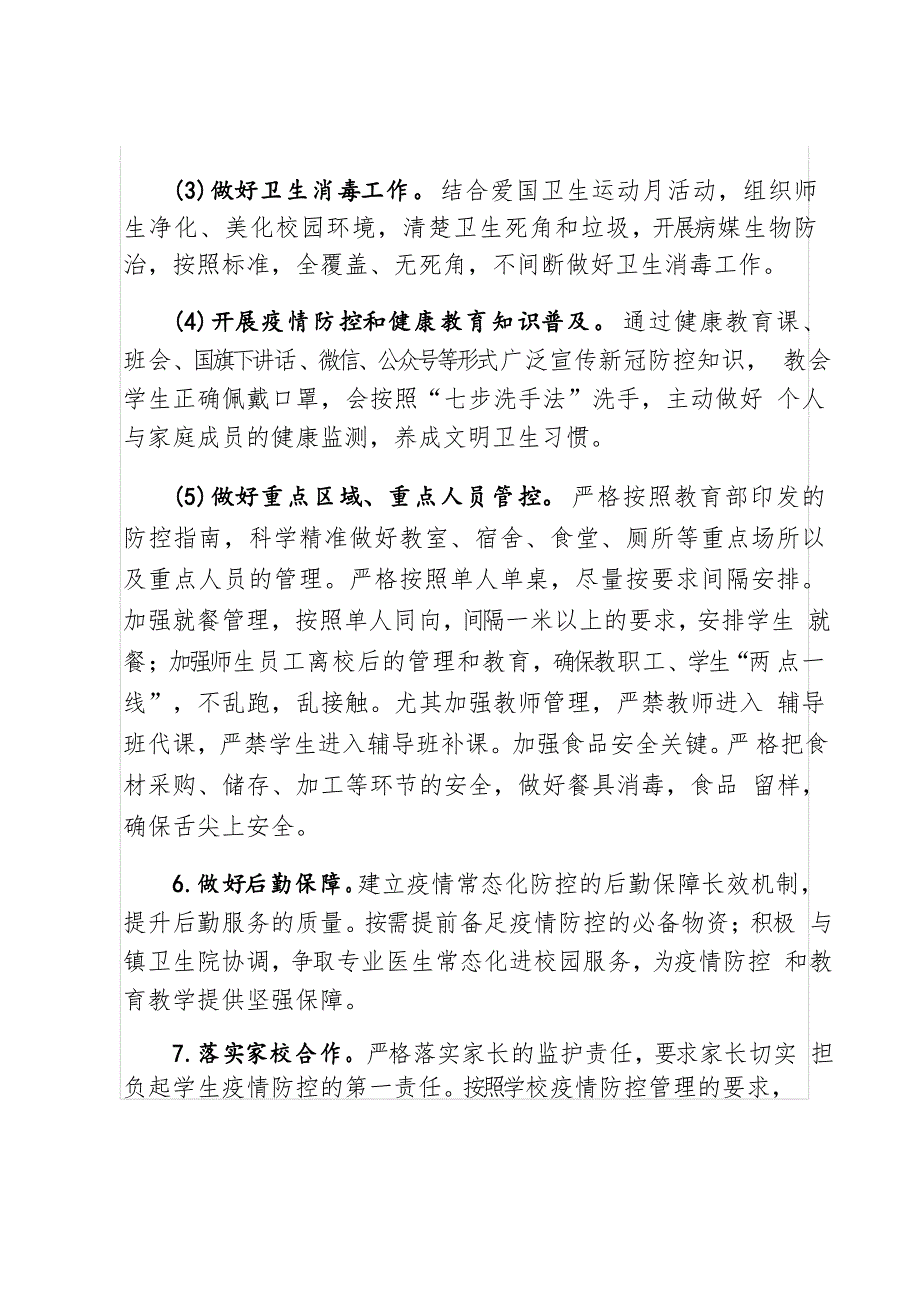 (3)做好卫生消毒工作。 结合爱国卫生运动月活动，组织师
生净化、美化校园环境，清楚卫生死角和垃圾，开展病媒生物防
治，按照标准，全覆盖、无死角，不间断做好卫生消毒工作。
(4)开展疫情防控和健康教育知识普及。 通过健康教育课、
班会、国旗下讲话、微信、公众号等形式广泛宣传新冠防控知识， 教会
学生正确佩戴口罩，会按照“七步洗手法”洗手，主动做好 个人
与家庭成员的健康监测，养成文明卫生习惯。
(5)做好重点区域、重点人员管控。 严格按照教育部印发的
防控指南，科学精准做好教室、宿舍、食堂、厕所等重点场所以
及重点人员的管理。严格按照单人单桌，尽量按要求间隔安排。
加强就餐管理，按照单人同向，间隔一米以上的要求，安排学生 就
餐；加强师生员工离校后的管理和教育，确保教职工、学生“两 点一
线”，不乱跑，乱接触。尤其加强教师管理，严禁教师进入 辅导
班代课，严禁学生进入辅导班补课。加强食品安全关键。严 格把食
材采购、储存、加工等环节的安全，做好餐具消毒，食品 留样，
确保舌尖上安全。
6.做好后勤保障。建立疫情常态化防控的后勤保障长效机制，
提升后勤服务的质量。按需提前备足疫情防控的必备物资；积极 与
镇卫生院协调，争取专业医生常态化进校园服务，为疫情防控 和教
育教学提供坚强保障。
7.落实家校合作。严格落实家长的监护责任，要求家长切实 担
负起学生疫情防控的第一责任。按照学校疫情防控管理的要求，